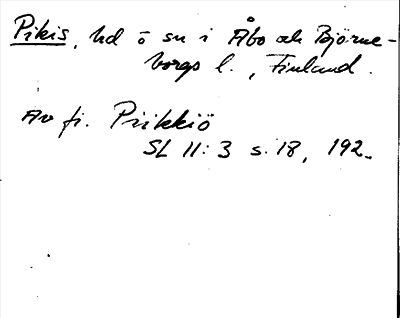 Pikis, hd o sn i Åbo och Björne-
borgs l., Finland.
Av fi. Piikkiö
SL 11:3 s. 18, 192.